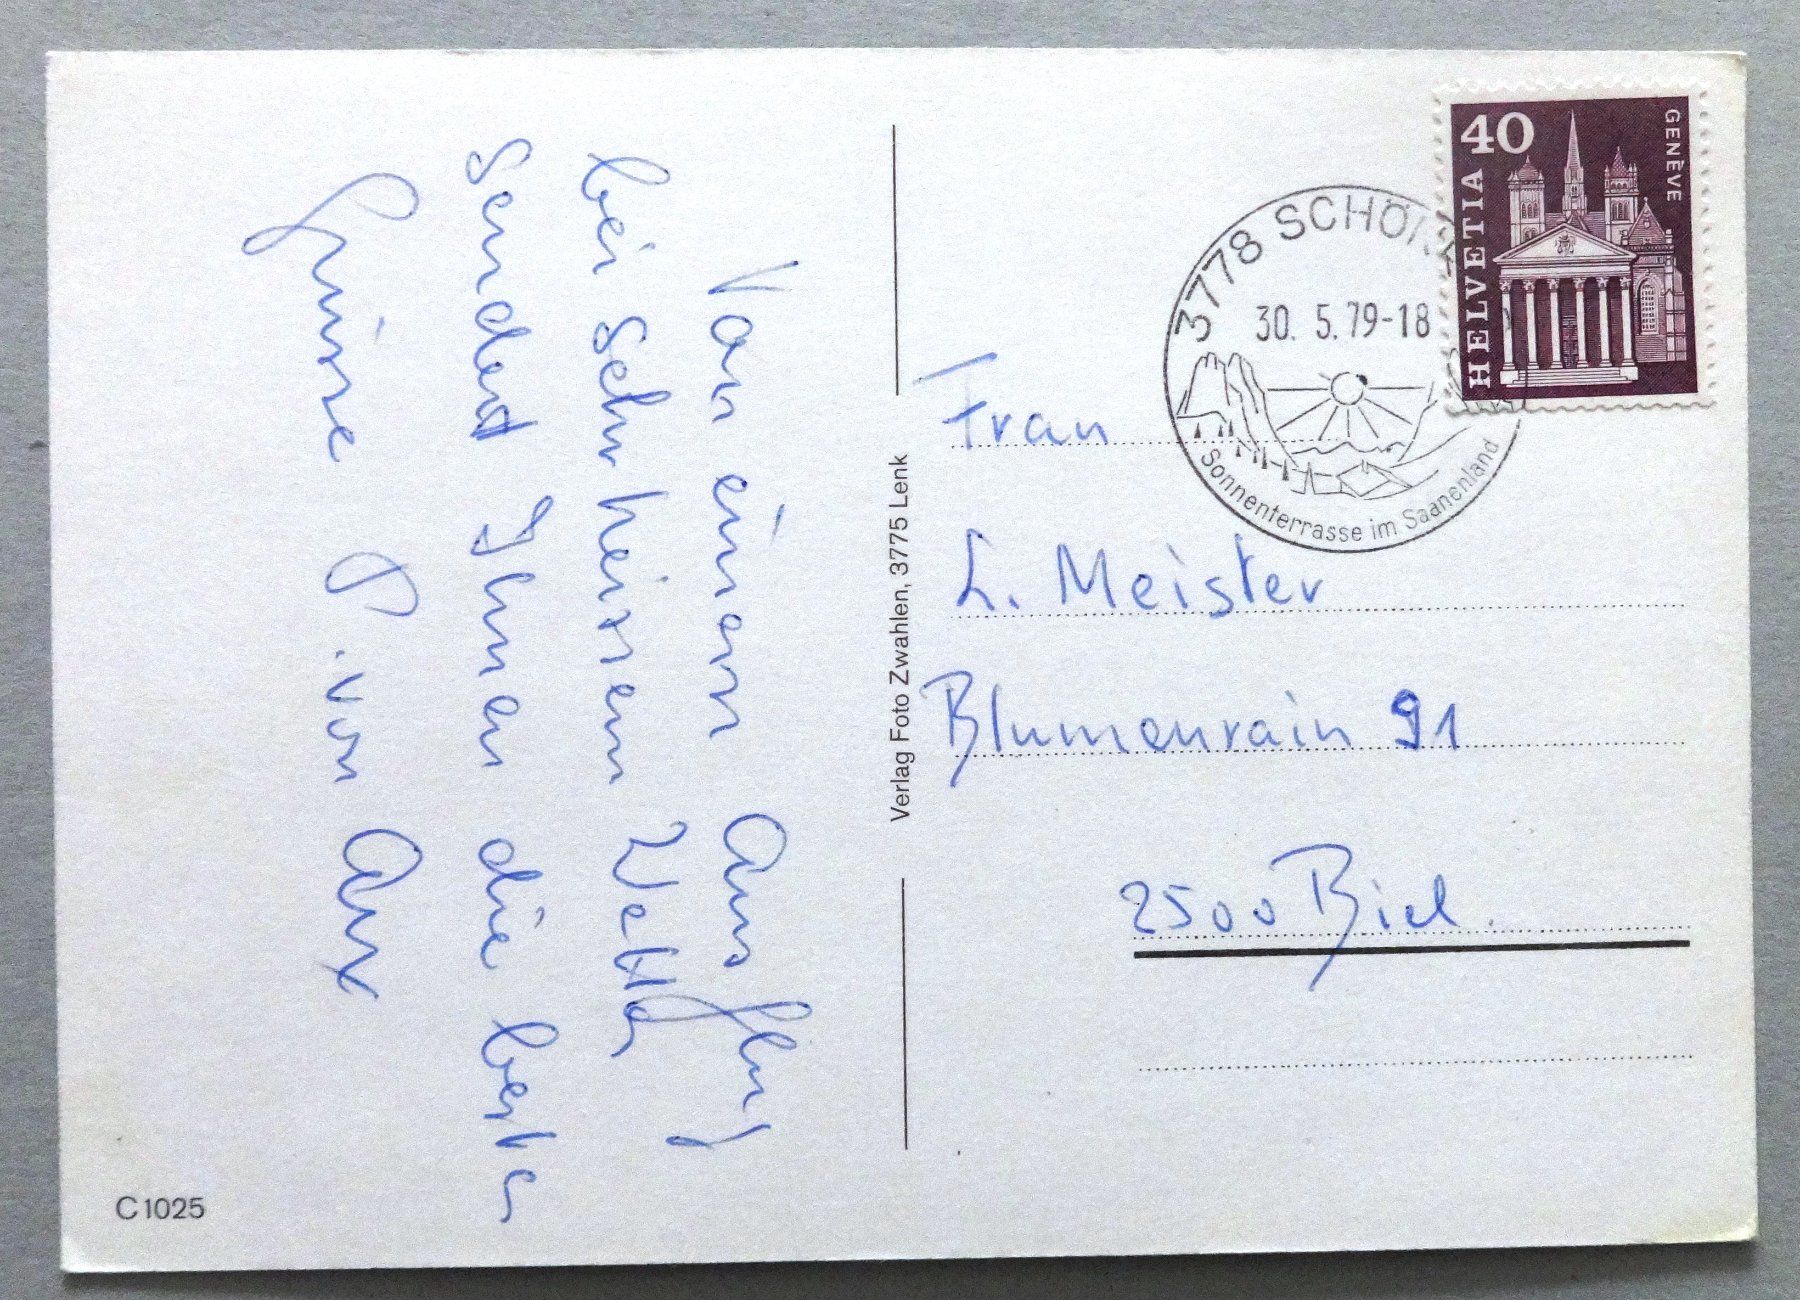 Von einem Ausflug
bei sehr heissem Wetter
sendet Ihnen die besten
Grüsse P. von Arx
C1025
Verlag Foto Zwahlen, 3775 Lenk
GENÈVE
40
HELVETIA
3778
30. 5. 79-18
Sonnenterrasse im Saanenland
Frau
L. Meister
Blumenrain 91
2500 Biel.